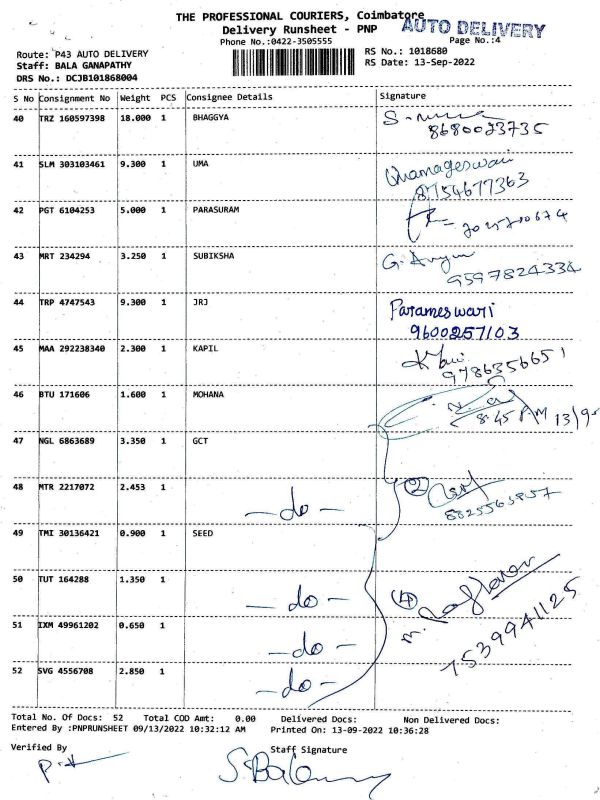 THE PROFESSIONAL COURIERS, Coimbatore
AUTO DELIVERY
Delivery Runsheet - PNP
Phone No.:0422-3505555
Page No.:4
Route: P43 AUTO DELIVERY
RS No.: 1018680
Staff: BALA GANAPATHY
RS Date: 13-Sep-2022
DRS No.: DCJB101868004
S No Consignment No Weight PCS Consignee Details Signature
40 TRZ 160597398 18.000 1 BHAGGYA
8680023735
41 SLM 303103461 9.300 1 UMA
8754677363
42 PGT 6104253 5.000 1 PARASURAM
43 MRT 234294 3.250 1 SUBIKSHA
9597824334
44 TRP 4747543 9.300 1 JRJ Parameswari
9600257103
45 MAA 292238340 2.300 1 KAPIL
9786356651
46 BTU 171606 1.600 1 MOHANA
8.45 PM 13/9
47 NGL 6863689 3.350 1 GCT
48 MTR 2217072 2.453 1 - do - 2
49 TMI 30136421 0.900 1 SEED
50 TUT 164288 1.350 1 - do - 4
51 IXM 49961202 0.650 1 - do - 7539941125
52 SVG 4556708 2.850 1 - do -
Total No. Of Docs: 52 Total COD Amt: 0.00 Delivered Docs: Non Delivered Docs:
Entered By :PNPRUNSHEET 09/13/2022 10:32:12 AM Printed On: 13-09-2022 10:36:28
Verified By Staff Signature